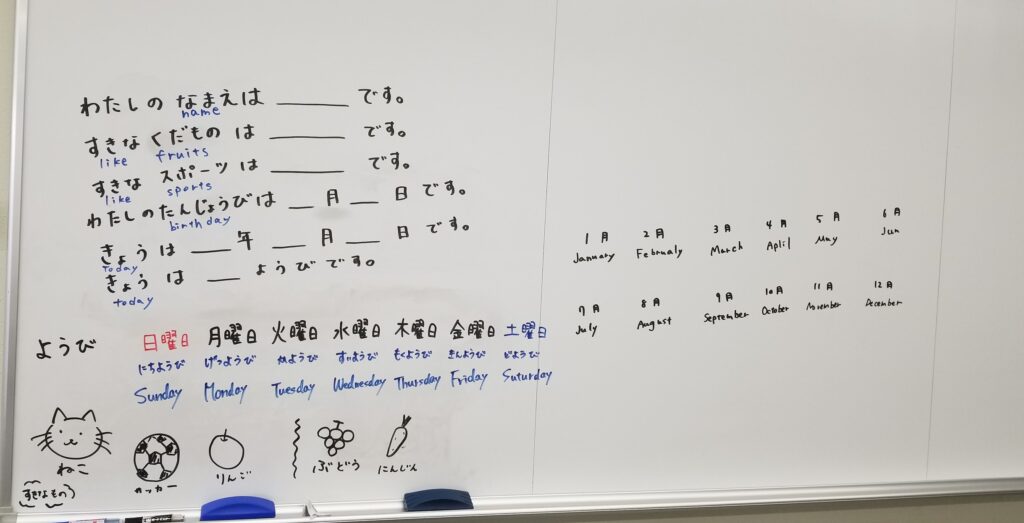 わたしの なまえは ______ です。
name
すきな くだもの は ______ です。
like fruits
すきな スポーツ は ______ です。
like sports
わたしのたんじょうびは __ 月 __ 日 です。
birthday
きょう は ___ 年 __ 月 __ 日 です。
today
きょう は __ ようびです。
today
ようび 日曜日 月曜日 火曜日 水曜日 木曜日 金曜日 土曜日
にちようび げつようび かようび すいようび もくようび きんようび どようび
Sunday Monday Tuesday Wednesday Thursday Friday Suturday
ねこ サッカー りんご ぶどう にんじん
(すきなもの)
1月 2月 3月 4月 5月 6月
January Februaly March Aplil May Jun
7月 8月 9月 10月 11月 12月
July August September October November December